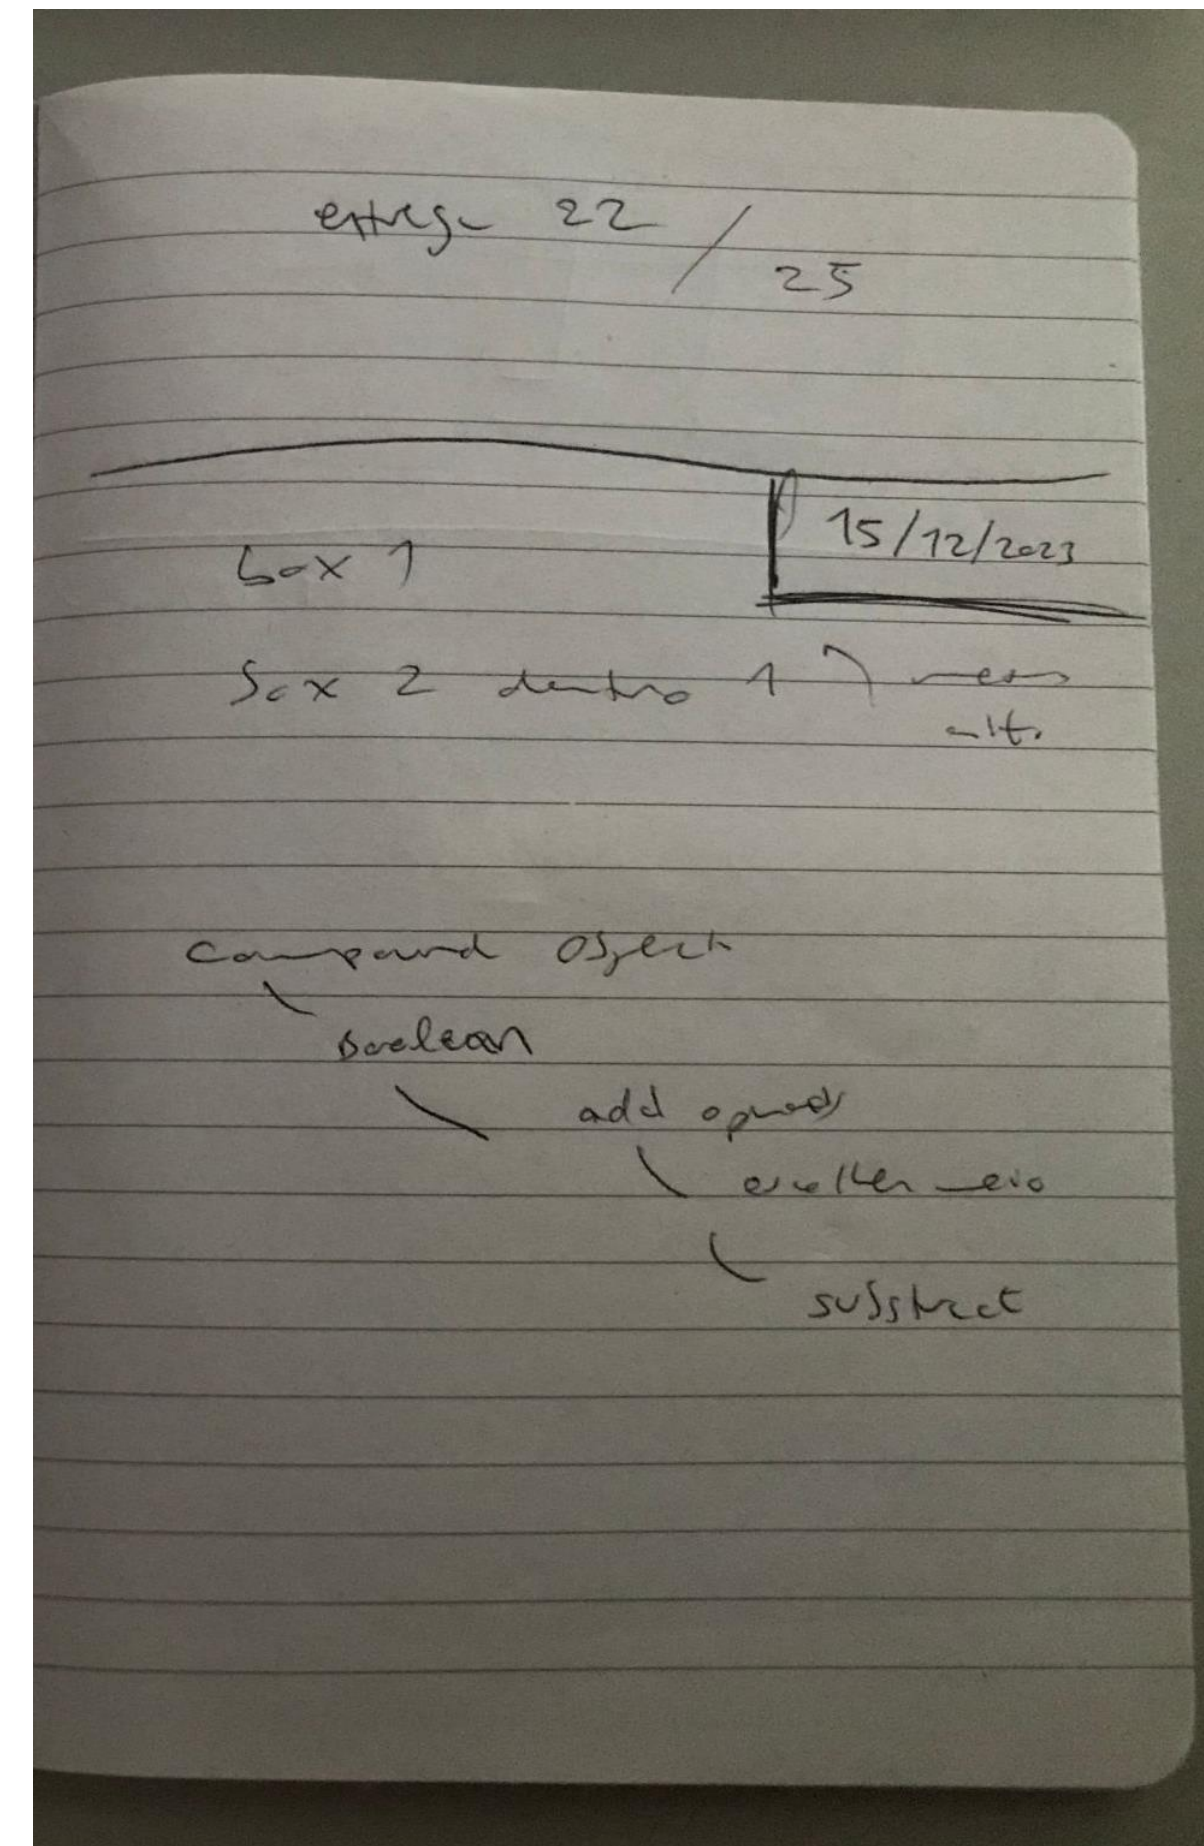 entrega 22 /
25
15/12/2023
box 1
box 2 dentro 1
alto
Compound Object
Boolean
add operands
escolher meio
substract